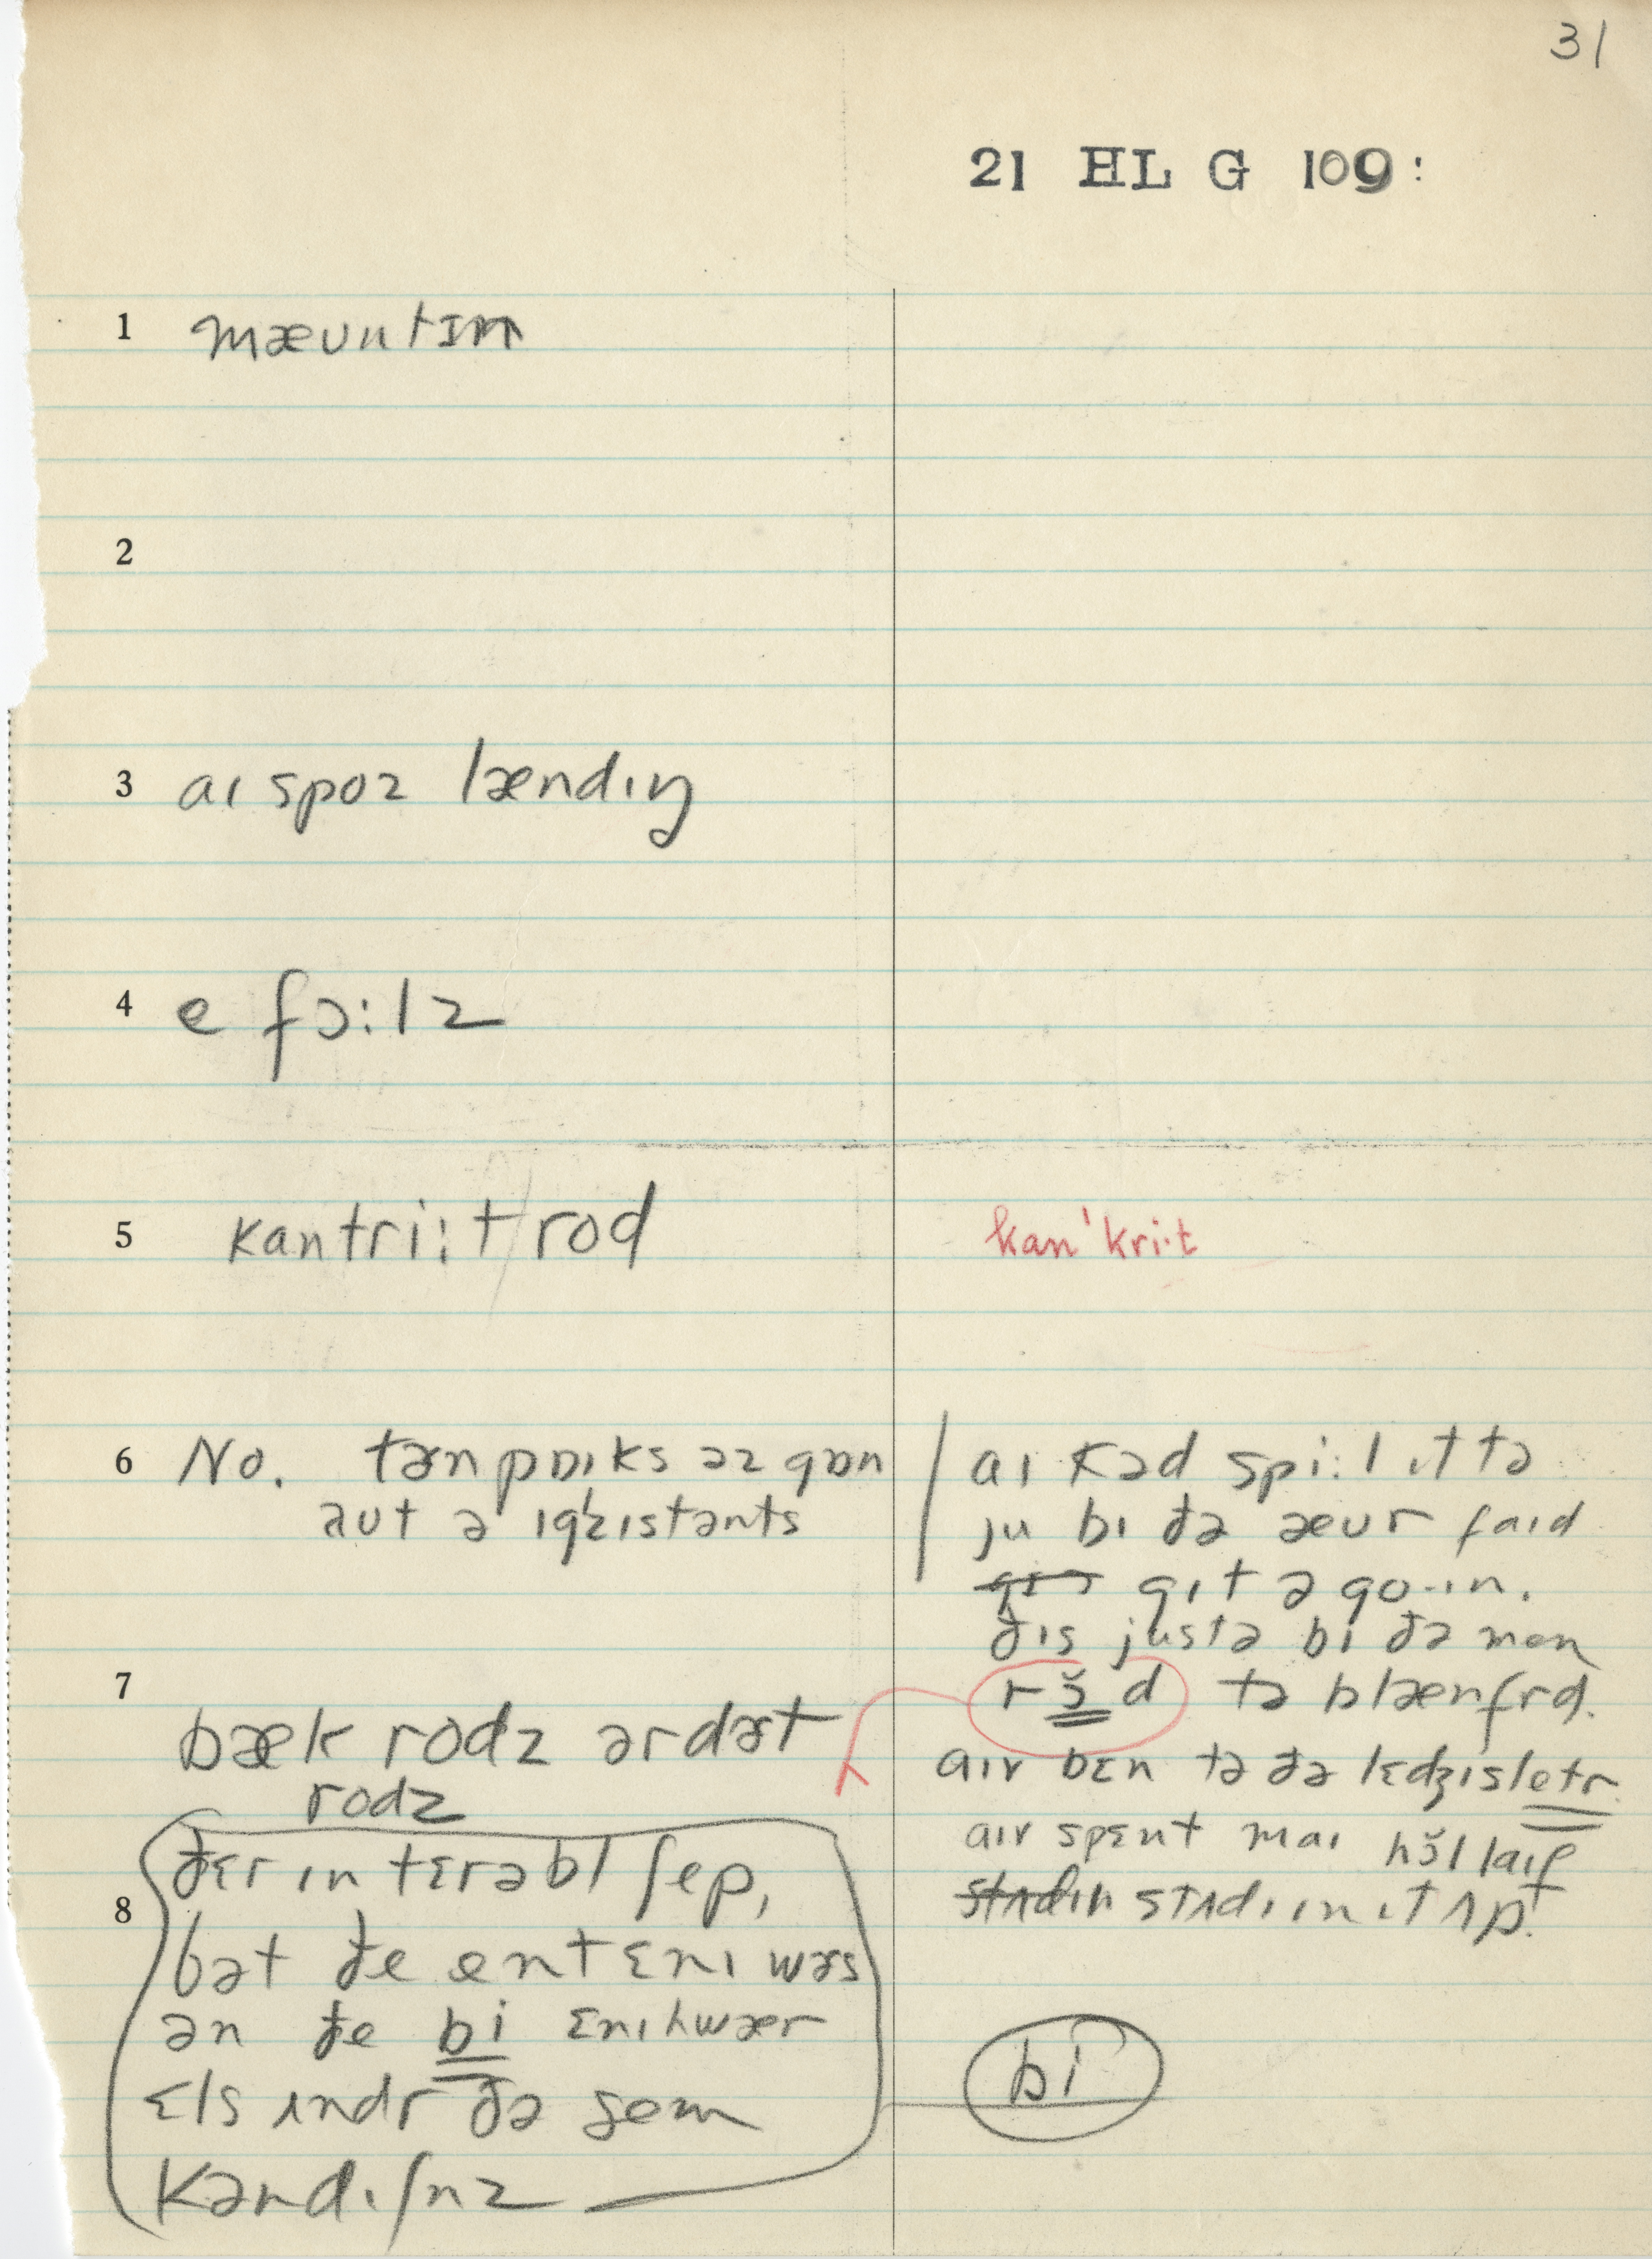 31
21 HL G 109:
1 mæʊntɪn
2
3 aɪ spoz lændɪŋ
4 e fɔ:lz
5 kantri:t/rod
kan'kri·t
6 No. tərnpɒɪks əz gɒn
aʊt ə ɪg'zɪstənts
aɪ kəd spi:l ɪt tə
ju bɪ ðə æʊr faɪd
gɪt ə go-ɪn.
ðɪs justə bi ðə men
rɔ̆d tə blænfrd.
aɪv bɛn tə ðə lɛdʒɪsletr.
aɪv spɛnt maɪ hɔ̆l laɪf
stʌdɪn stʌdɪɪn ɪt ʌp.
7
bæk rodz ər dərt
rodz
8
ðɛr ɪn tɛrəbl ʃep,
bət ðe ent ɛnɪ wərs
ən ðe bi ɛnɪhwær
ɛls ʌndr ðə sem
kəndɪʃnz
bi